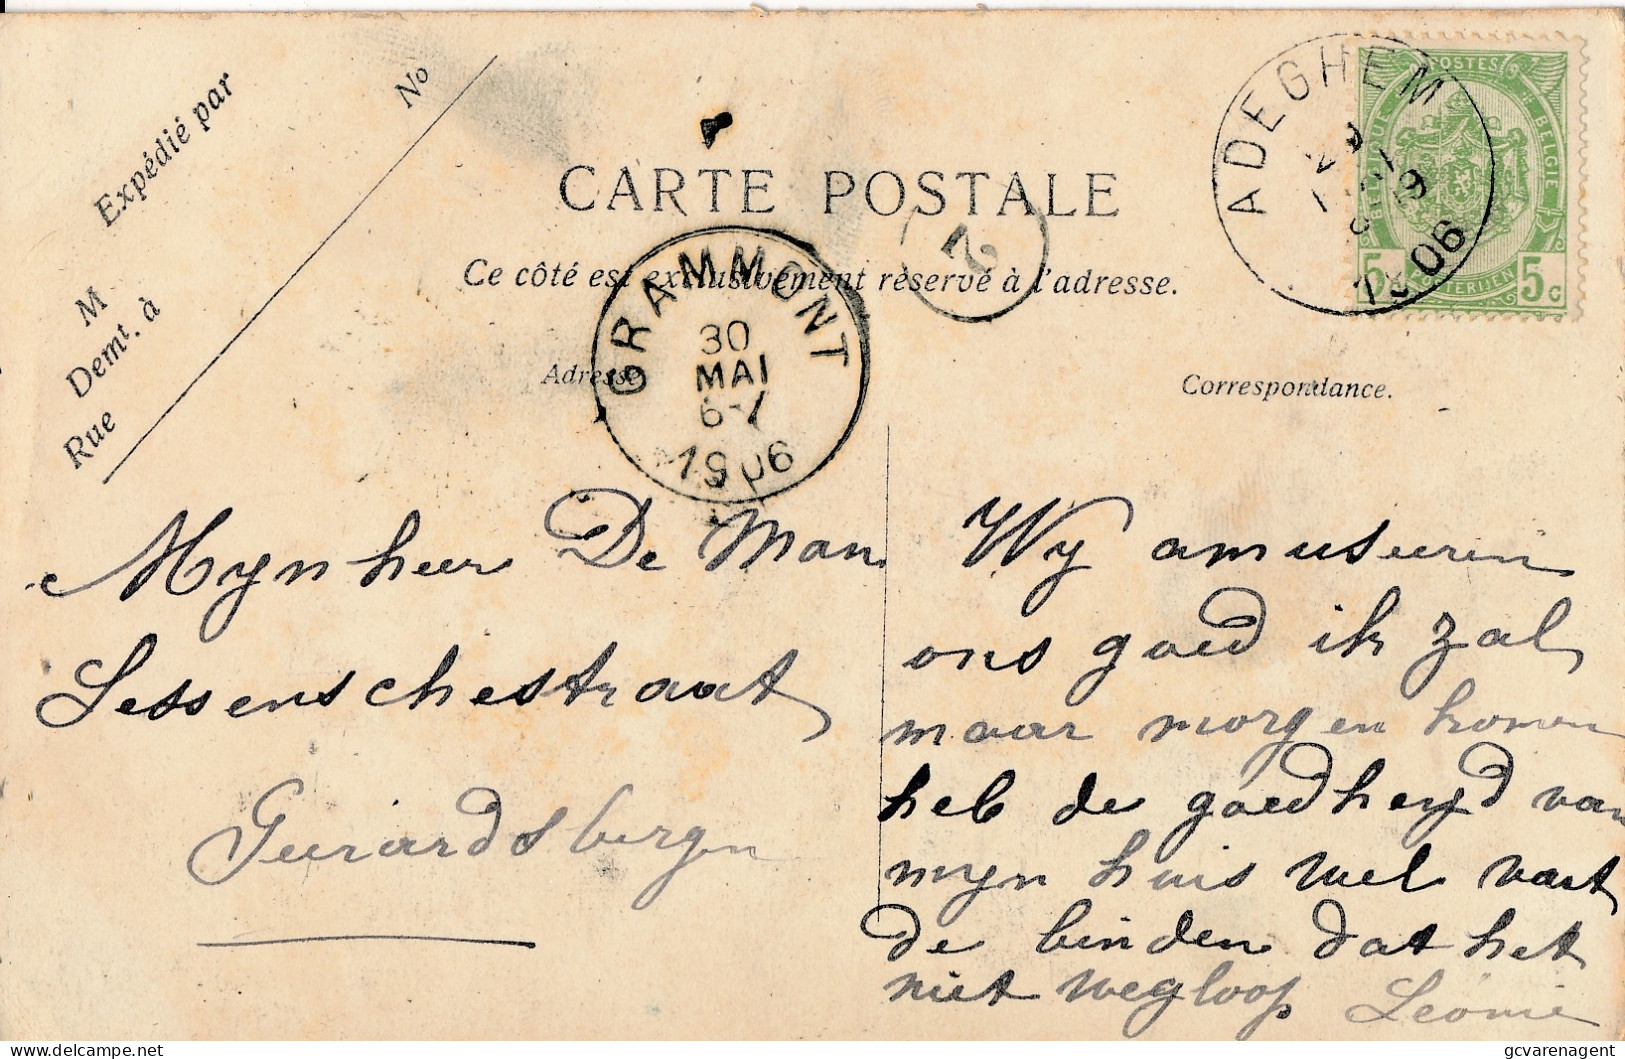 Expédié par
No
M
Demt. à
Rue
CARTE POSTALE
Ce côté est exclusivement réservé à l'adresse.
Adresse
Correspondance.
ADEGHEM
1906
GRAMMONT
30
MAI
6-7
1906
2
POSTES
BELGIQUE
BELGIE
5
5c
Mynheer De Man
Lessenschestraat
Geerardsbergen
Wy amuseeren
ons goed ik zal
maar morgen komen
heb de goedheyd van
myn huis wel vast
de binden dat het
niet wegloop Leonie
gcvarenagent